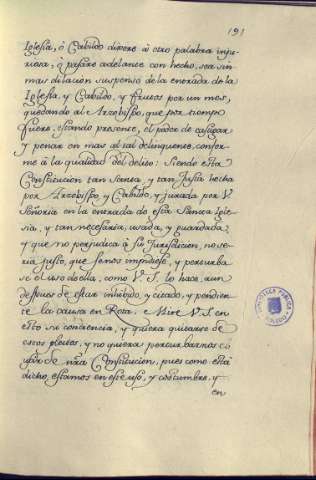 191
Iglesia, ò Cabildo dixere à otro palabra inju-
riosa, ò pasare adelante con hecho, sea sin
mas dilacion suspenso de la entrada de la
Iglesia, y Cabildo, y frutos por un mes,
quedando al Arzobispo, que por tiempo
fuere, estando presente, el poder de castigar
y penar en mas al tal delinquente, confor-
me à la qualidad del delito: Siendo esta
Constitucion tan Santa, y tan Justa hecha
por Arzobispo, y Cabildo, y jurada por V.
Señoria en la entrada de esta Santa Igle-
sia, y tan necesaria, usada, y guardada,
y que no perjudica à su Jurisdicion, no se-
ria justo, que se nos impidiese, y perturba-
se el uso de ella, como V. S. lo hace, aun
despues de estar inibido, y citado, y pendien-
te la causa en Rota. e Mire V. S. en
esto su conciencia, y quiera quitarse de
estos pleitos, y no quiera perturbarnos el
usar de nra Constitucion, pues como està
dicho, estamos en ese uso, y costumbre, y
en
BIBLIOTECA PUBLICA
TOLEDO